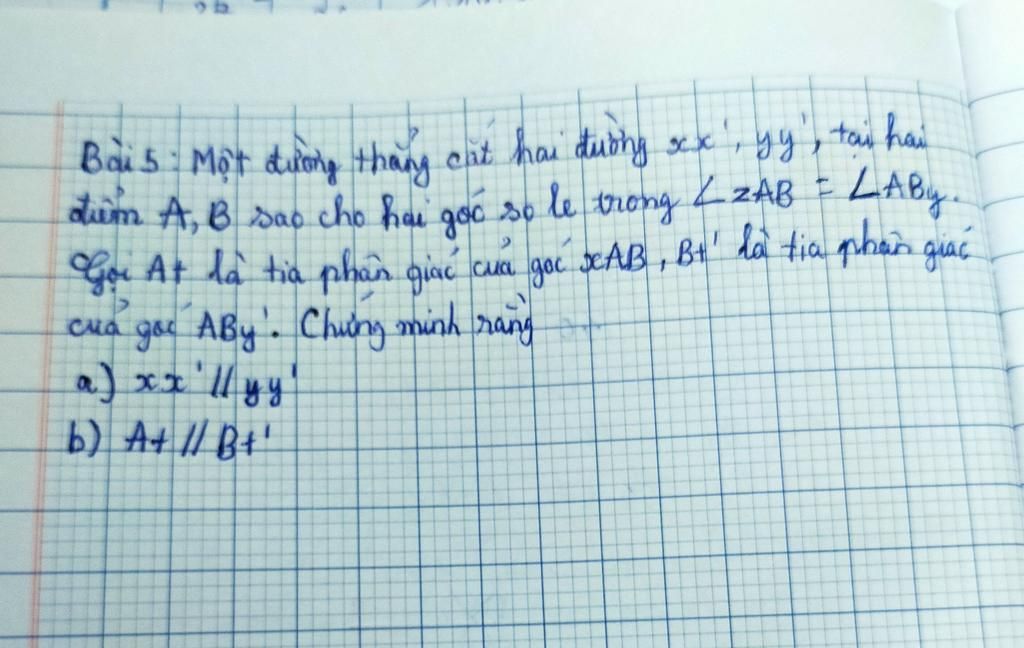 Bài 5: Một đường thẳng cắt hai đường xx', yy', tại hai
điểm A, B sao cho hai góc so le trong ∠zAB = ∠ABy.
Gọi At là tia phân giác của góc xAB, Bt' là tia phân giác
của góc ABy'. Chứng minh rằng
a) xx' // yy'
b) At // Bt'